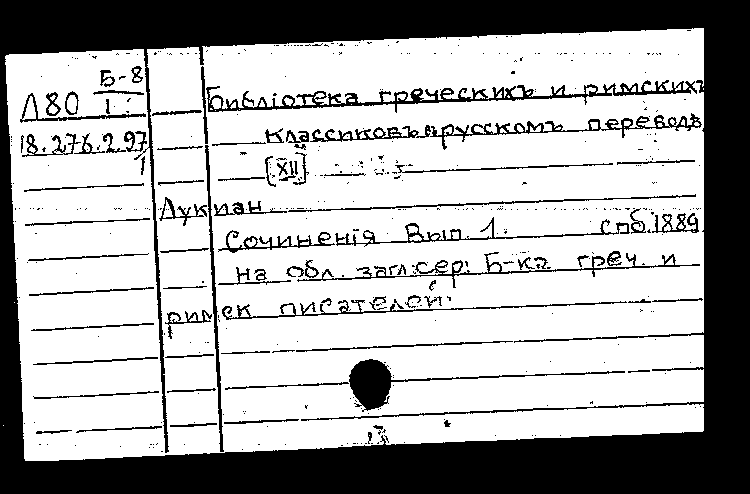 Б-8
Л80 1
Библіотека греческихъ и римскихъ
18.276.2.97
1
классиковъ в русскомъ переводѣ
[XII]
Лукиан
Сочиненія Вып. 1. спб.1889
на обл. загл.сер: Б-ка греч. и
римск писателей.